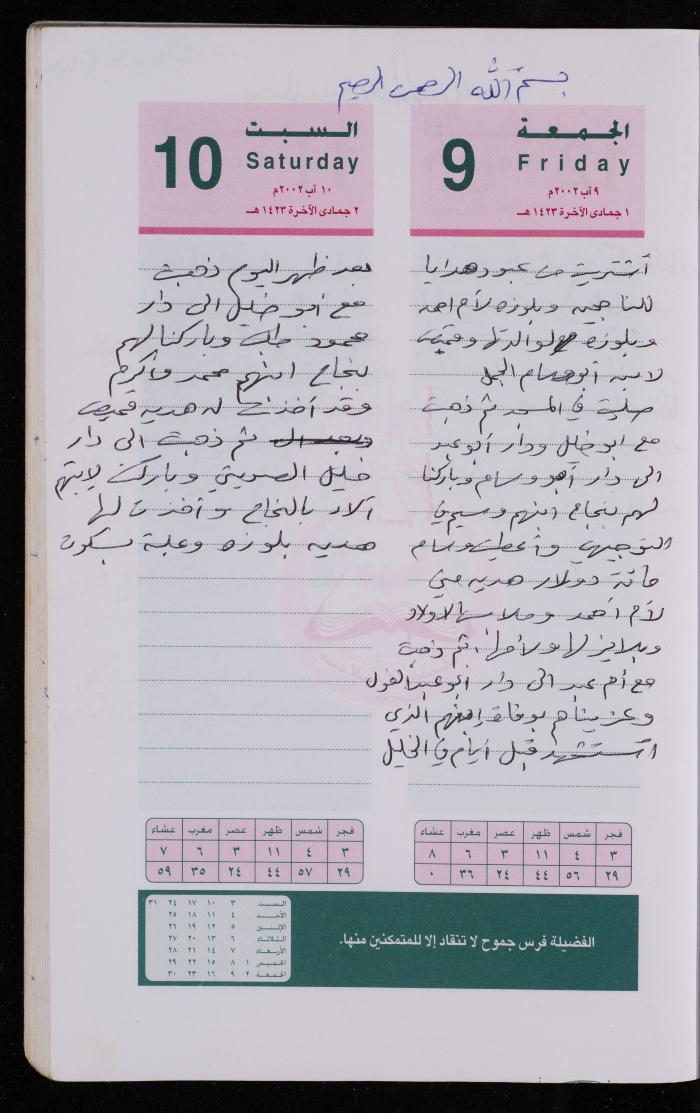 بسم الله الرحمن الرحيم
الجمعة
9
Friday
٩ آب ٢٠٠٢م
١ جمادى الآخرة ١٤٢٣ هـ
أشتريت من عبود هدايا
للناجحين وبلوزه لأم احمد
وبلوزه لوالدتها وقميص
لابنه أبو وسام الجمل
صليت في المسجد ثم ذهبت
مع ابو خليل ودار أبو عبد
الى دار أبو وسام وباركنا
لهم بنجاح ابنهم وسيم في
التوجيهي وأعطيت وسام
مائة دولار هديه مني
لأم أحمد وملابس الاولاد
وبلايز لها ولأمها، ثم ذهبت
مع أم عبد الى دار أبو عبد الغول
وعزيناهم بوفاة ابنهم الذي
استشهد قبل أيام في الخليل
فجر شمس ظهر عصر مغرب عشاء
٣ ٤ ١١ ٣ ٦ ٨
٢٩ ٥٦ ٤٤ ٢٤ ٣٦ ٠
السبت
10
Saturday
١٠ آب ٢٠٠٢م
٢ جمادى الآخرة ١٤٢٣ هـ
بعد ظهر اليوم ذهبت
مع أبو خليل الى دار
محمود وباركنا لهم
بنجاح ابنهم محمد وأكرم
وقد أخذت له هديه قميص
ثم ذهبت الى دار
خليل الصويتي وباركت لابنتهم
آلاء بالنجاح وأخذت لها
هديه بلوزه وعلبة بسكوت
فجر شمس ظهر عصر مغرب عشاء
٣ ٤ ١١ ٣ ٦ ٧
٢٩ ٥٧ ٤٤ ٢٤ ٣٥ ٥٩
الفضيلة فرس جموح لا تنقاد إلا للمتمكنين منها.
السبت ٣ ١٠ ١٧ ٢٤ ٣١
الأحد ٤ ١١ ١٨ ٢٥
الإثنين ٥ ١٢ ١٩ ٢٦
الثلاثاء ٦ ١٣ ٢٠ ٢٧
الأربعاء ٧ ١٤ ٢١ ٢٨
الخميس ١ ٨ ١٥ ٢٢ ٢٩
الجمعة ٢ ٩ ١٦ ٢٣ ٣٠